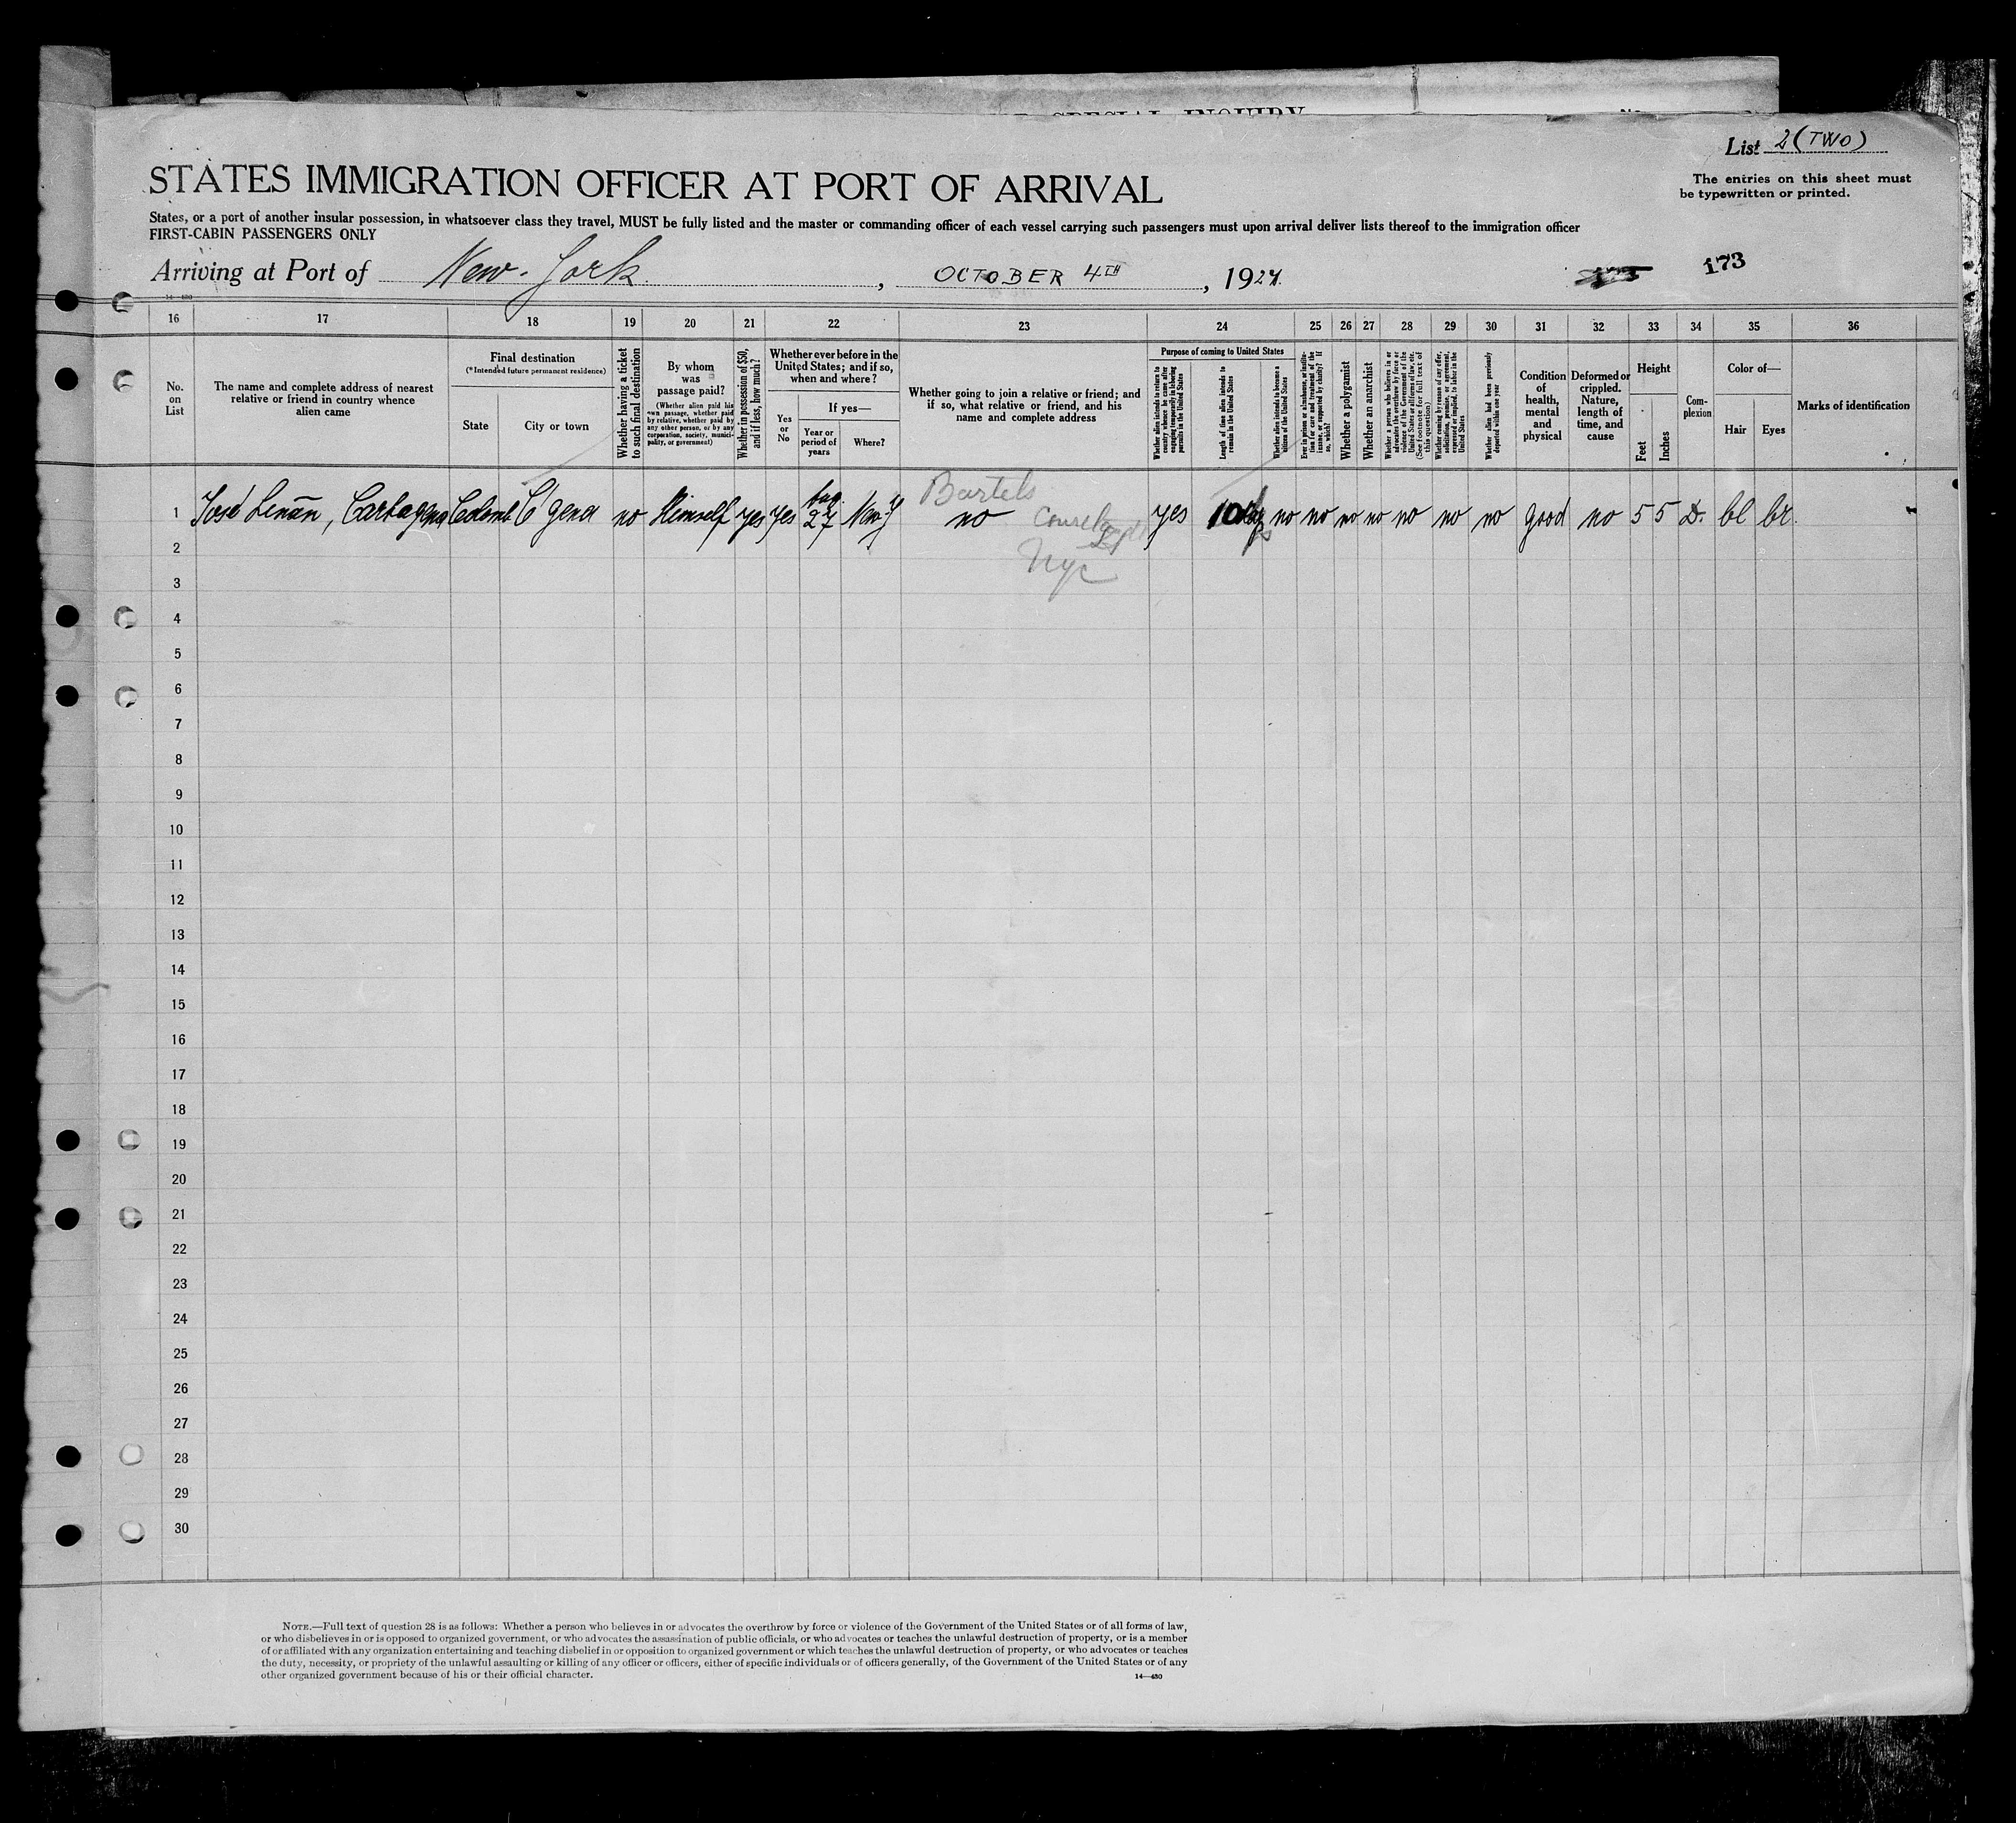 SPECIAL INQUIRY
List 2 (TWO)
STATES IMMIGRATION OFFICER AT PORT OF ARRIVAL
The entries on this sheet must
be typewritten or printed.
States, or a port of another insular possession, in whatsoever class they travel, MUST be fully listed and the master or commanding officer of each vessel carrying such passengers must upon arrival deliver lists thereof to the immigration officer
FIRST-CABIN PASSENGERS ONLY
Arriving at Port of New-York, OCTOBER 4TH, 1927.
173
14-430
16 17 18 19 20 21 22 23 24 25 26 27 28 29 30 31 32 33 34 35 36
No. on List
The name and complete address of nearest relative or friend in country whence alien came
Final destination
(*Intended future permanent residence)
State
City or town
Whether having a ticket to such final destination
By whom was passage paid?
(Whether alien paid his own passage, whether paid by relative, whether paid by any other person, or by any corporation, society, municipality, or government)
Whether in possession of $50, and if less, how much?
Whether ever before in the United States; and if so, when and where?
Yes or No
If yes—
Year or period of years
Where?
Whether going to join a relative or friend; and if so, what relative or friend, and his name and complete address
Purpose of coming to United States
Whether alien intends to return to country whence he came after engaging temporarily in laboring pursuits in the United States
Length of time alien intends to remain in the United States
Whether alien intends to become a citizen of the United States
Ever in prison or almshouse, or institution for care and treatment of the insane, or supported by charity? If so, which?
Whether a polygamist
Whether an anarchist
Whether a person who believes in or advocates the overthrow by force or violence of the Government of the United States or all forms of law, etc. (See footnote for full text of this question)
Whether coming by reason of any offer, solicitation, promise, or agreement, expressed or implied, to labor in the United States
Whether alien had been previously deported within one year
Condition of health, mental and physical
Deformed or crippled. Nature, length of time, and cause
Height
Feet
Inches
Complexion
Color of—
Hair
Eyes
Marks of identification
Bartels
1 José Lenán, Cartagena Colomb C'gena no Himself yes yes Aug. 27 New Y no yes 10 dys no no no no no no no good no 5 5 D. bl br. -
Nyc
2
3
4
5
6
7
8
9
10
11
12
13
14
15
16
17
18
19
20
21
22
23
24
25
26
27
28
29
30
NOTE.—Full text of question 28 is as follows: Whether a person who believes in or advocates the overthrow by force or violence of the Government of the United States or of all forms of law,
or who disbelieves in or is opposed to organized government, or who advocates the assassination of public officials, or who advocates or teaches the unlawful destruction of property, or is a member
of or affiliated with any organization entertaining and teaching disbelief in or opposition to organized government or which teaches the unlawful destruction of property, or who advocates or teaches
the duty, necessity, or propriety of the unlawful assaulting or killing of any officer or officers, either of specific individuals or of officers generally, of the Government of the United States or of any
other organized government because of his or their official character.
14-430